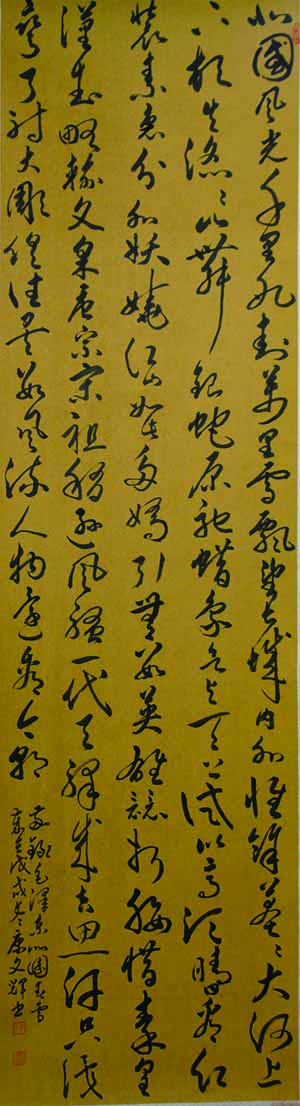 北國风光千里冰封萬里雪飘望长城内外惟馀莽莽大河上
下顿失滔滔山舞银蛇原驰蜡象欲与天公试比高须晴日看红
装素裹分外妖娆江山如此多娇引無数英雄竞折腰惜秦皇
汉武略输文采唐宗宋祖稍逊风骚一代天骄成吉思汗只识
弯弓射大雕俱往矣数风流人物还看今朝
录毛泽东沁園春雪
戊戌冬康文辉书